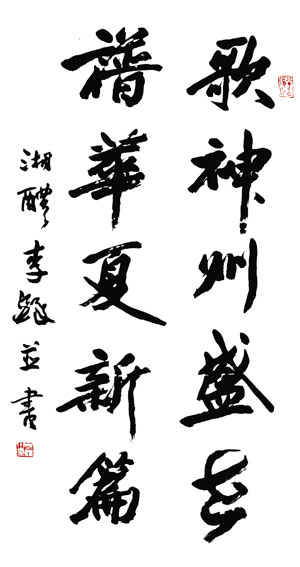 歌神州盛世
譜華夏新篇
湘醴李鐸並書